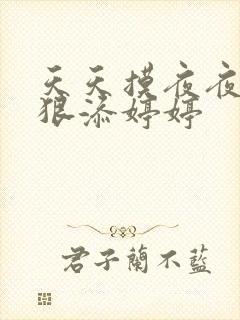 天天摸夜夜
狠添婷婷
君子蘭不藍